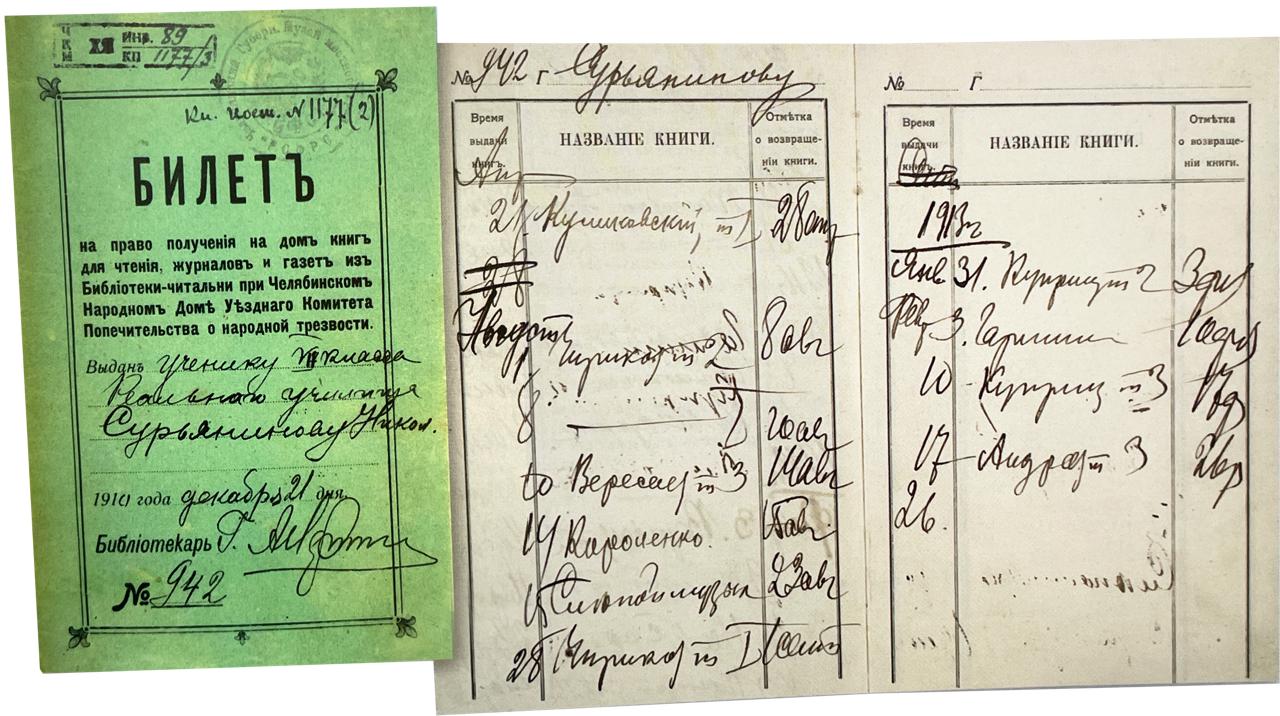 ЧКМ ХЯ ИНВ. 89
КП 1177/3
Кн. пост. N 1177 (2)
БИЛЕТЪ
на право полученія на домъ книгъ
для чтенія, журналовъ и газетъ изъ
Библіотеки-читальни при Челябинскомъ
Народномъ Домѣ Уѣзднаго Комитета
Попечительства о народной трезвости.
Выданъ ученику VII класса
Реальнаго училища
Сурьянинову Никол.
1910 года декабря 21 дня.
Библіотекарь Г.
№ 942
№ 942 Г Сурьянинову
Время выдачи книгъ.
НАЗВАНІЕ КНИГИ.
Отмѣтка о возвраще-ніи книги.
Апр
21 Куликовскій, т I 28 апр
28
Августъ
1 Чириковъ т 8 авг
8. 10 авг
10 Вересаев т 3 14 авг
14 Короленко. 15 авг
15 23 авг
28 Чириков т I 1 сент
№ Г
Время выдачи книгъ.
НАЗВАНІЕ КНИГИ.
Отмѣтка о возвраще-ніи книги.
1913 г
Янв 31. Куприн т 2 3 фев
Фев 3. Гаршин 10 фев
10 Куприн т 3 17 фев
17 Андреев т 3 26 фев
26.